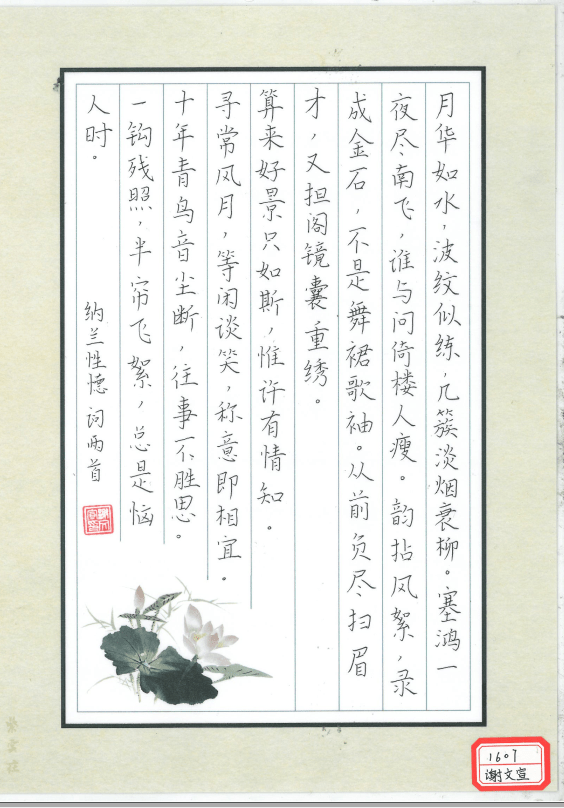 月华如水，波纹似练，几簇淡烟衰柳。塞鸿一
夜尽南飞，谁与问倚楼人瘦。韵拈风絮，录
成金石，不是舞裙歌袖。从前负尽扫眉
才，又担阁镜囊重绣。
算来好景只如斯，惟许有情知。
寻常风月，等闲谈笑，称意即相宜。
十年青鸟音尘断，往事不胜思。
一钩残照，半帘飞絮，总是恼
人时。
纳兰性德词两首
1607
谢文宣